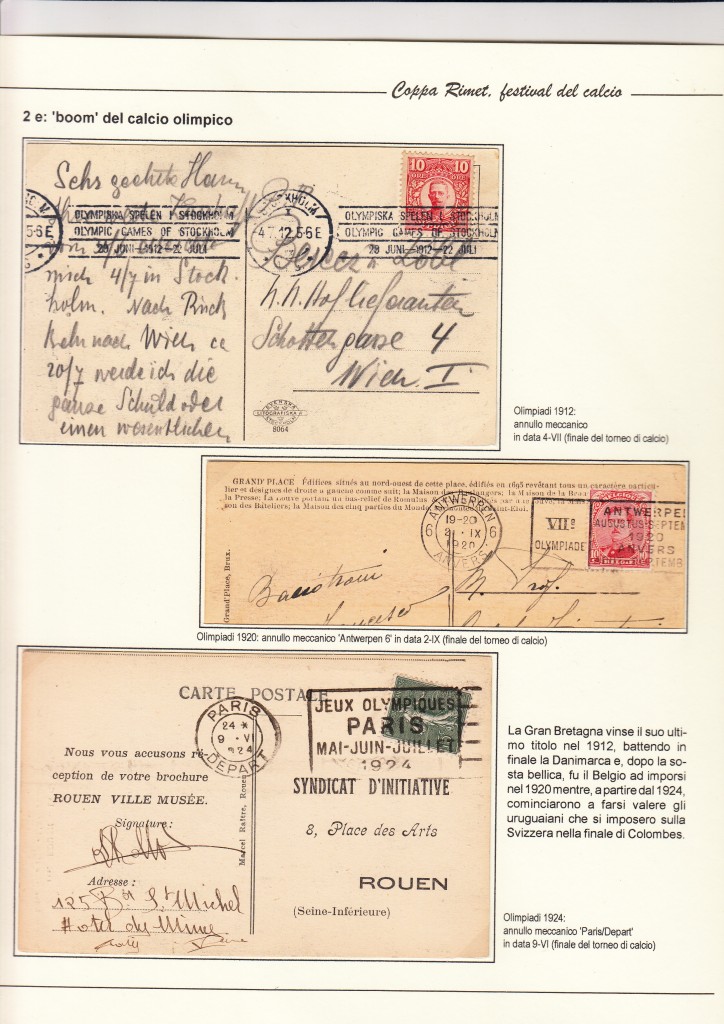 Coppa Rimet, festival del calcio
2 e: 'boom' del calcio olimpico
10 10
ÖRE
OLYMPISKA SPELEN I STOCKHOLM
OLYMPIC GAMES OF STOCKHOLM
29 JUNI-1912-22 JULI
5-6 E
STOCKHOLM
4.7.12.5-6 E
OLYMPISKA SPELEN I STOCKHOLM
OLYMPIC GAMES OF STOCKHOLM
29 JUNI-1912-22 JULI
Sehr geehrte
4/7 in Stock
holm. Nach Rück
kehr nach Wien ca
20/7 werde ich die
ganze Schuld oder
einen wesentlichen
k.k. Hoflieferanten
Schottengasse 4
Wien. I
SVENSKA
LITOGRAFISKA A
STOCKHOLM
8064
Olimpiadi 1912:
annullo meccanico
in data 4-VII (finale del torneo di calcio)
GRAND'PLACE Édifices situés au nord-ouest de cette place, édifiés en 1695 revêtant tous un caractère particu-
lier et désignés de droite à gauche comme suit; la Maison des Boulangers; la Maison de la
la Presse; La Louve portant un bas-relief de Romulus
des Bâteliers; la Maison des cinq parties du Monde, St-Eloi.
Grand'Place, Brux.
ANTWERPEN
6 19-20 6
2 - IX
1920
ANVERS
VIIe
OLYMPIADE
ANTWERPEN
AUGUSTUS-SEPTEM
1920
ANVERS
SEPTEMB
BELGIQUE
BELGIE
Prof.
Olimpiadi 1920: annullo meccanico 'Antwerpen 6' in data 2-IX (finale del torneo di calcio)
CARTE POSTALE
PARIS
24 *
9 - VI
924
DEPART
JEUX OLYMPIQUES
PARIS
MAI-JUIN-JUILLET
1924
Nous vous accusons ré-
ception de votre brochure
ROUEN VILLE MUSÉE.
Signature:
Adresse:
125 Bd St Michel
Hotel du
Marcel Raitre, Rouen
SYNDICAT D'INITIATIVE
8, Place des Arts
ROUEN
(Seine-Inférieure)
La Gran Bretagna vinse il suo ulti-
mo titolo nel 1912, battendo in
finale la Danimarca e, dopo la so-
sta bellica, fu il Belgio ad imporsi
nel 1920 mentre, a partire dal 1924,
cominciarono a farsi valere gli
uruguaiani che si imposero sulla
Svizzera nella finale di Colombes.
Olimpiadi 1924:
annullo meccanico 'Paris/Depart'
in data 9-VI (finale del torneo di calcio)